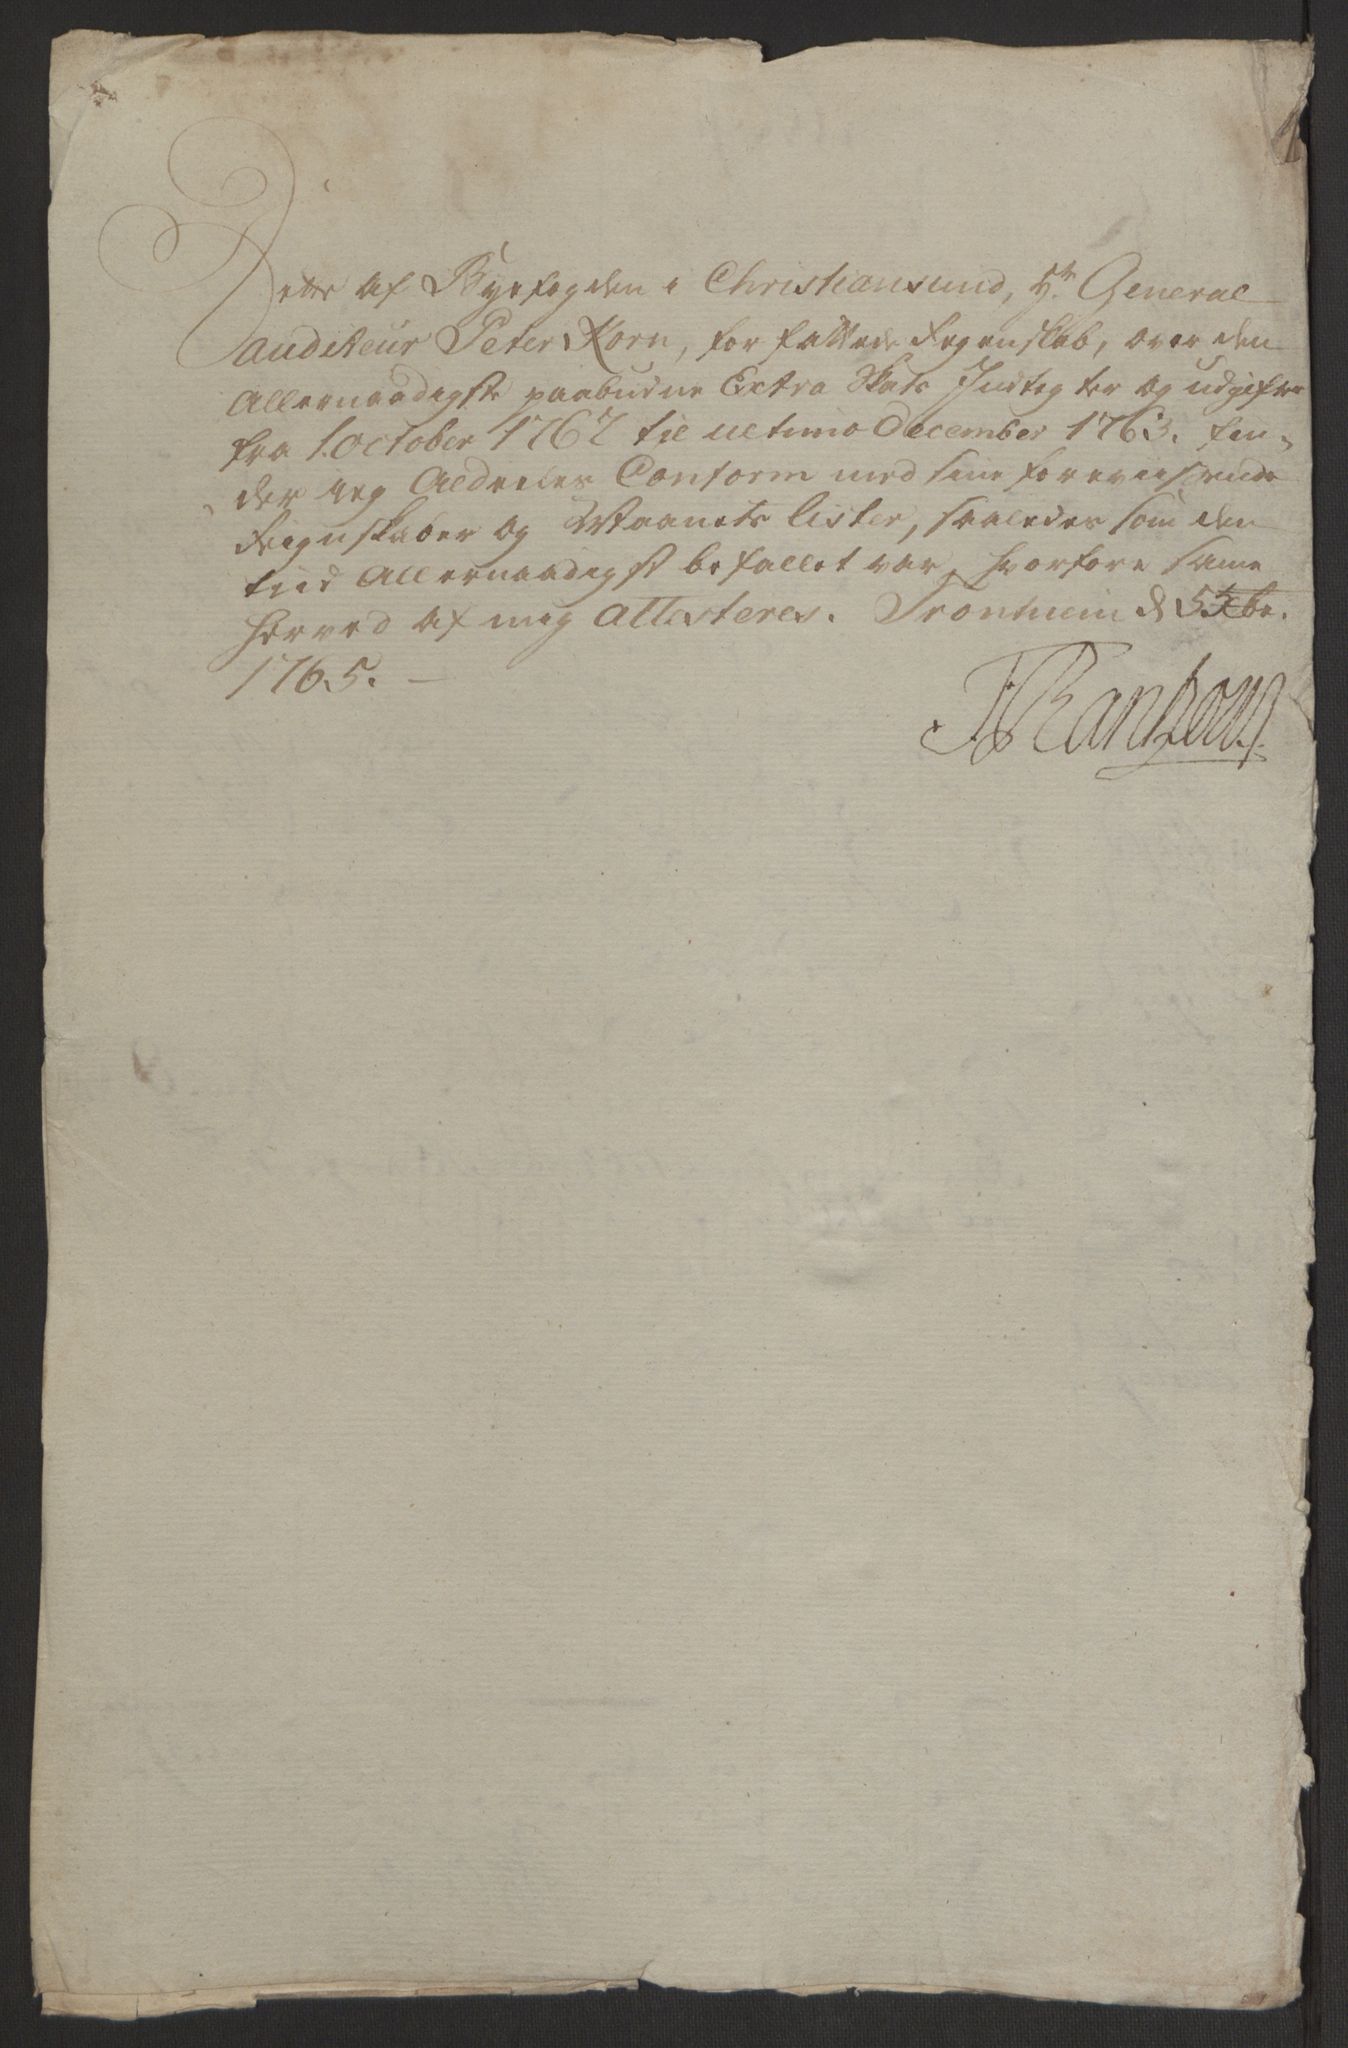 Dette af Byefogden i Christiansund, Hr. General
auditeur Peter Korn, forfattede Regenskab, over den
Allernaadigste paabudne Extra Skats Indtegter og udgifter
fra 1. October 1762 til ultimo December 1763. fin-
der jeg Aldeeles Conform med sine foreviisende
Reignskaber og Maanets Lister, saaledes som den
tiid Allernaadigst befallet var, hvorfore samme
herved af mig Attesteres. Tronhiem d 5 Xbr.
1765. —
Rantzou